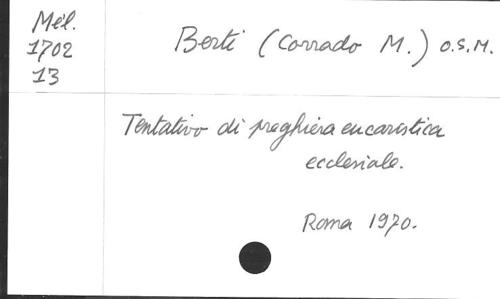 Mél.
1702
13
Berti (Corrado M.) O.S.M.
Tentativo di preghiera eucaristica
ecclesiale.
Roma 1970.